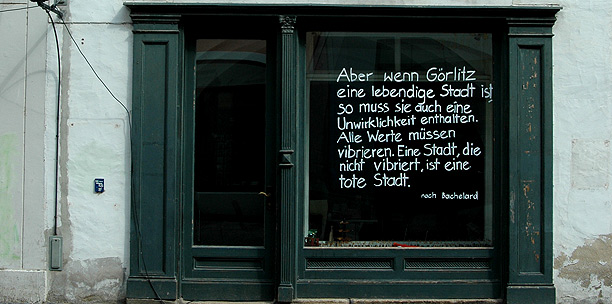 Aber wenn Görlitz
eine lebendige Stadt ist
so muss sie auch eine
Unwirklichkeit enthalten.
Alle Werte müssen
vibrieren. Eine Stadt, die
nicht vibriert, ist eine
tote Stadt.
nach Bachelard